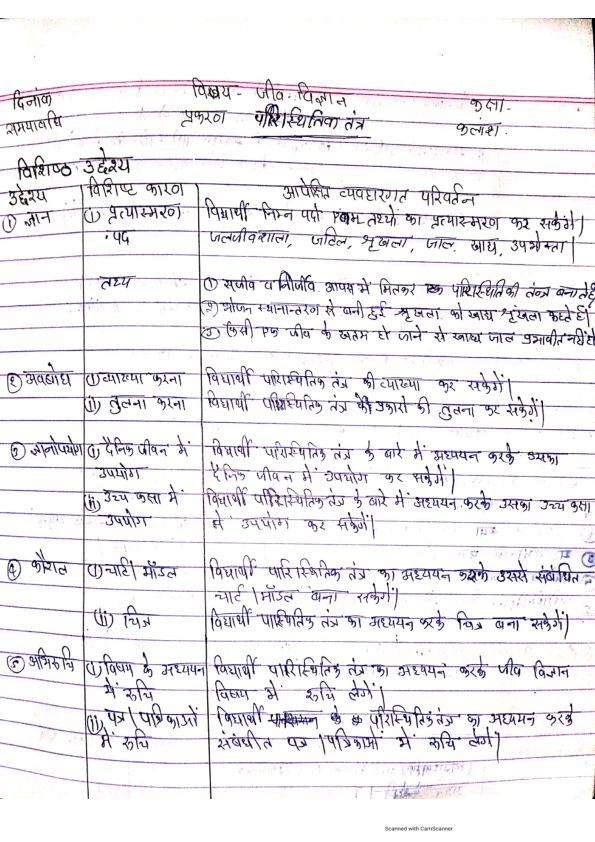 दिनांक विषय - जीव-विज्ञान कक्षा-
समयावधि प्रकरण पारिस्थितिक तंत्र कलांश.
विशिष्ठ उद्देश्य
उद्देश्य विशिष्ट कारण आपेक्षित व्यवहारगत परिवर्तन
① ज्ञान (i) प्रत्यास्मरण विद्यार्थी निम्न पदो एवंम तथ्यो का प्रत्यास्मरण कर सकेंगे।
: पद जलजीवशाला, जटिल, श्रृंखला, जाल, खाद्य, उपभोक्ता।
तथ्य ① सजीव व निर्जीव आपस मे मिलकर एक पारिस्थितिकी तंत्र बनाते है
② भोजन स्थानान्तरण से बनी हुई श्रृंखला को खाद्य श्रृंखला कहते है।
③ किसी एक जीव के खतम हो जाने से खाद्य जाल प्रभावीत नहीं हो
② अवबोध (i) व्याख्या करना विद्यार्थी पारिस्थितिक तंत्र की व्याख्या कर सकेगें।
(ii) तुलना करना विद्यार्थी पारिस्थितिक तंत्र के प्रकारो की तुलना कर सकेगें।
③ ज्ञानोपयोग (i) दैनिक जीवन में विद्यार्थी पारिस्थितिक तंत्र के बारे में अध्ययन करके उसका
उपयोग दैनिक जीवन में उपयोग कर सकेगें।
(ii) उच्च कक्षा में विद्यार्थी पारिस्थितिक तंत्र के बारे में अध्ययन करके उसका उच्च कक्षा
उपयोग में उपयोग कर सकेगें।
④ कौशल (i) चार्ट। मॉडल विद्यार्थी पारिस्थितिक तंत्र का अध्ययन करके उससे संबंधित
चार्ट । मॉडल बना सकेगें।
(ii) चित्र विद्यार्थी पारिस्थितिक तंत्र का अध्ययन करके चित्र बना सकेगें।
⑤ अभिरुचि (i) विषय के अध्ययन विद्यार्थी पारिस्थितिक तंत्र का अध्ययन करके जीव विज्ञान
में रुचि विषय में रुचि लेगें।
(ii) पत्र । पत्रिकाओं विद्यार्थी पारिस्थितिक तंत्र का अध्ययन करके
में रुचि संबंधीत पत्र । पत्रिकाओं में रुचि लेगें।
Scanned with CamScanner